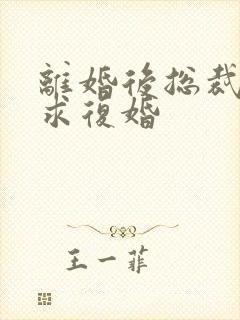 離婚後總裁
求復婚
王一菲